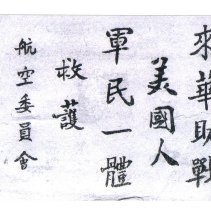 來華助戰
美國人
軍民一體
救護
航空委員會